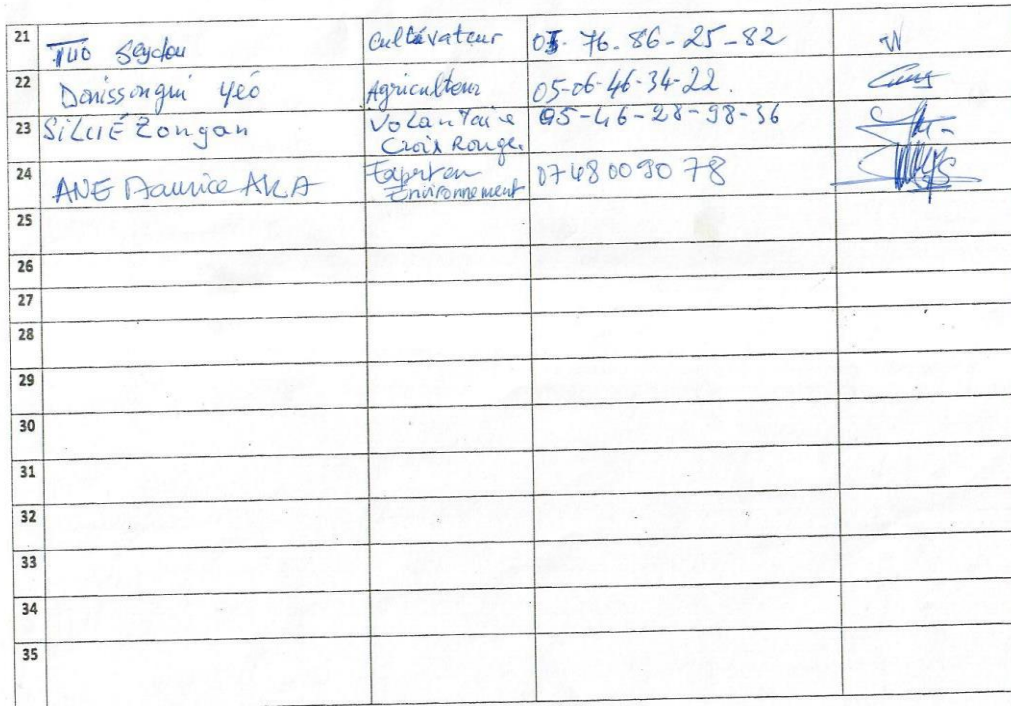 21 TUO Seydou Cultivateur 05-76-86-25-82
22 Donissongui Yéo Agriculteur 05-06-46-34-22.
23 SiLUÉ Zongan Volantaire Croix Rouge. 05-46-28-98-36
24 ANE Maurice AKA Expert en Environnement 0748009078
25
26
27
28
29
30
31
32
33
34
35